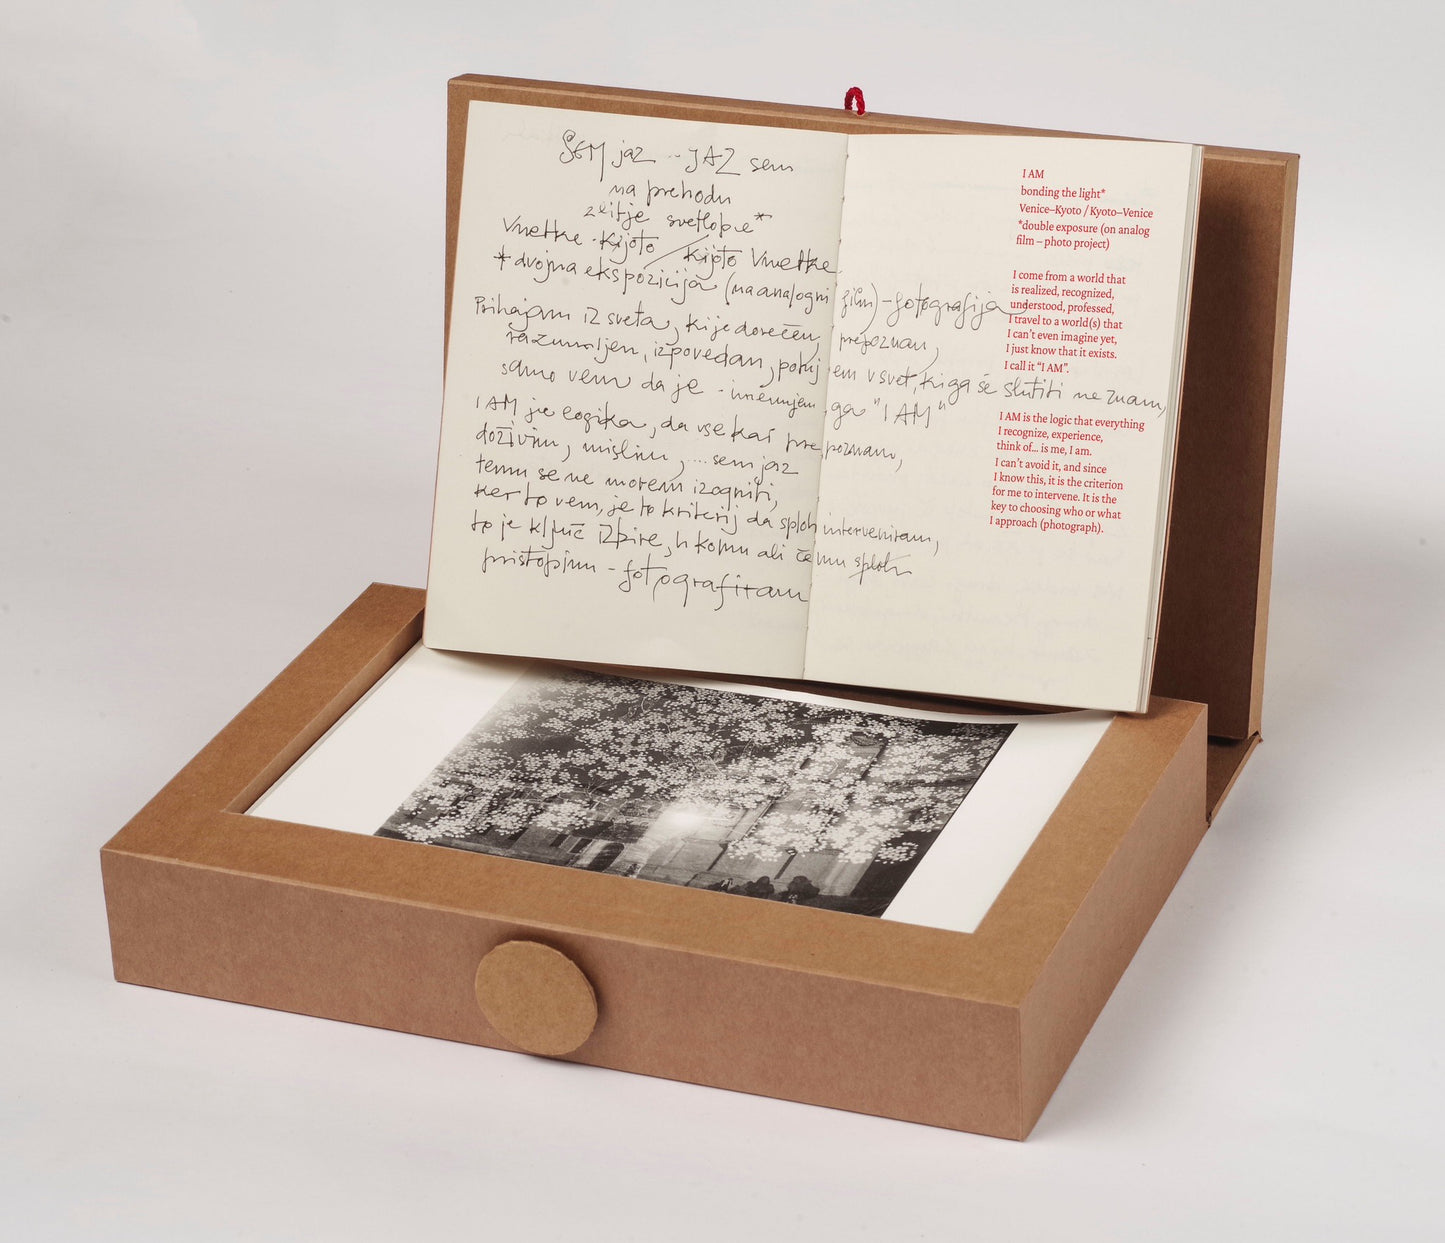 SEM jaz - JAZ sem
na prehodu
zlitje svetlobe*
Vnetke - Kijoto / Kijoto Vnetke
*dvojna ekspozicija (na analogni film) - fotografija
Prihajam iz sveta, ki je dorečen, prepoznan,
razumljen, izpovedan, potujem v svet, ki ga še slutiti ne znam,
samo vem da je - imenujem ga "I AM"
I AM je logika, da vse kar prepoznam,
doživim, mislim, ... sem jaz
temu se ne morem izogniti,
ker to vem, je to kriterij da sploh interveniram,
to je ključ izbire, h komu ali čemu sploh
pristopim - fotografiram
I AM
bonding the light*
Venice–Kyoto / Kyoto–Venice
*double exposure (on analog
film – photo project)
I come from a world that
is realized, recognized,
understood, professed,
I travel to a world(s) that
I can't even imagine yet,
I just know that it exists.
I call it “I AM”.
I AM is the logic that everything
I recognize, experience,
think of... is me, I am.
I can't avoid it, and since
I know this, it is the criterion
for me to intervene. It is the
key to choosing who or what
I approach (photograph).